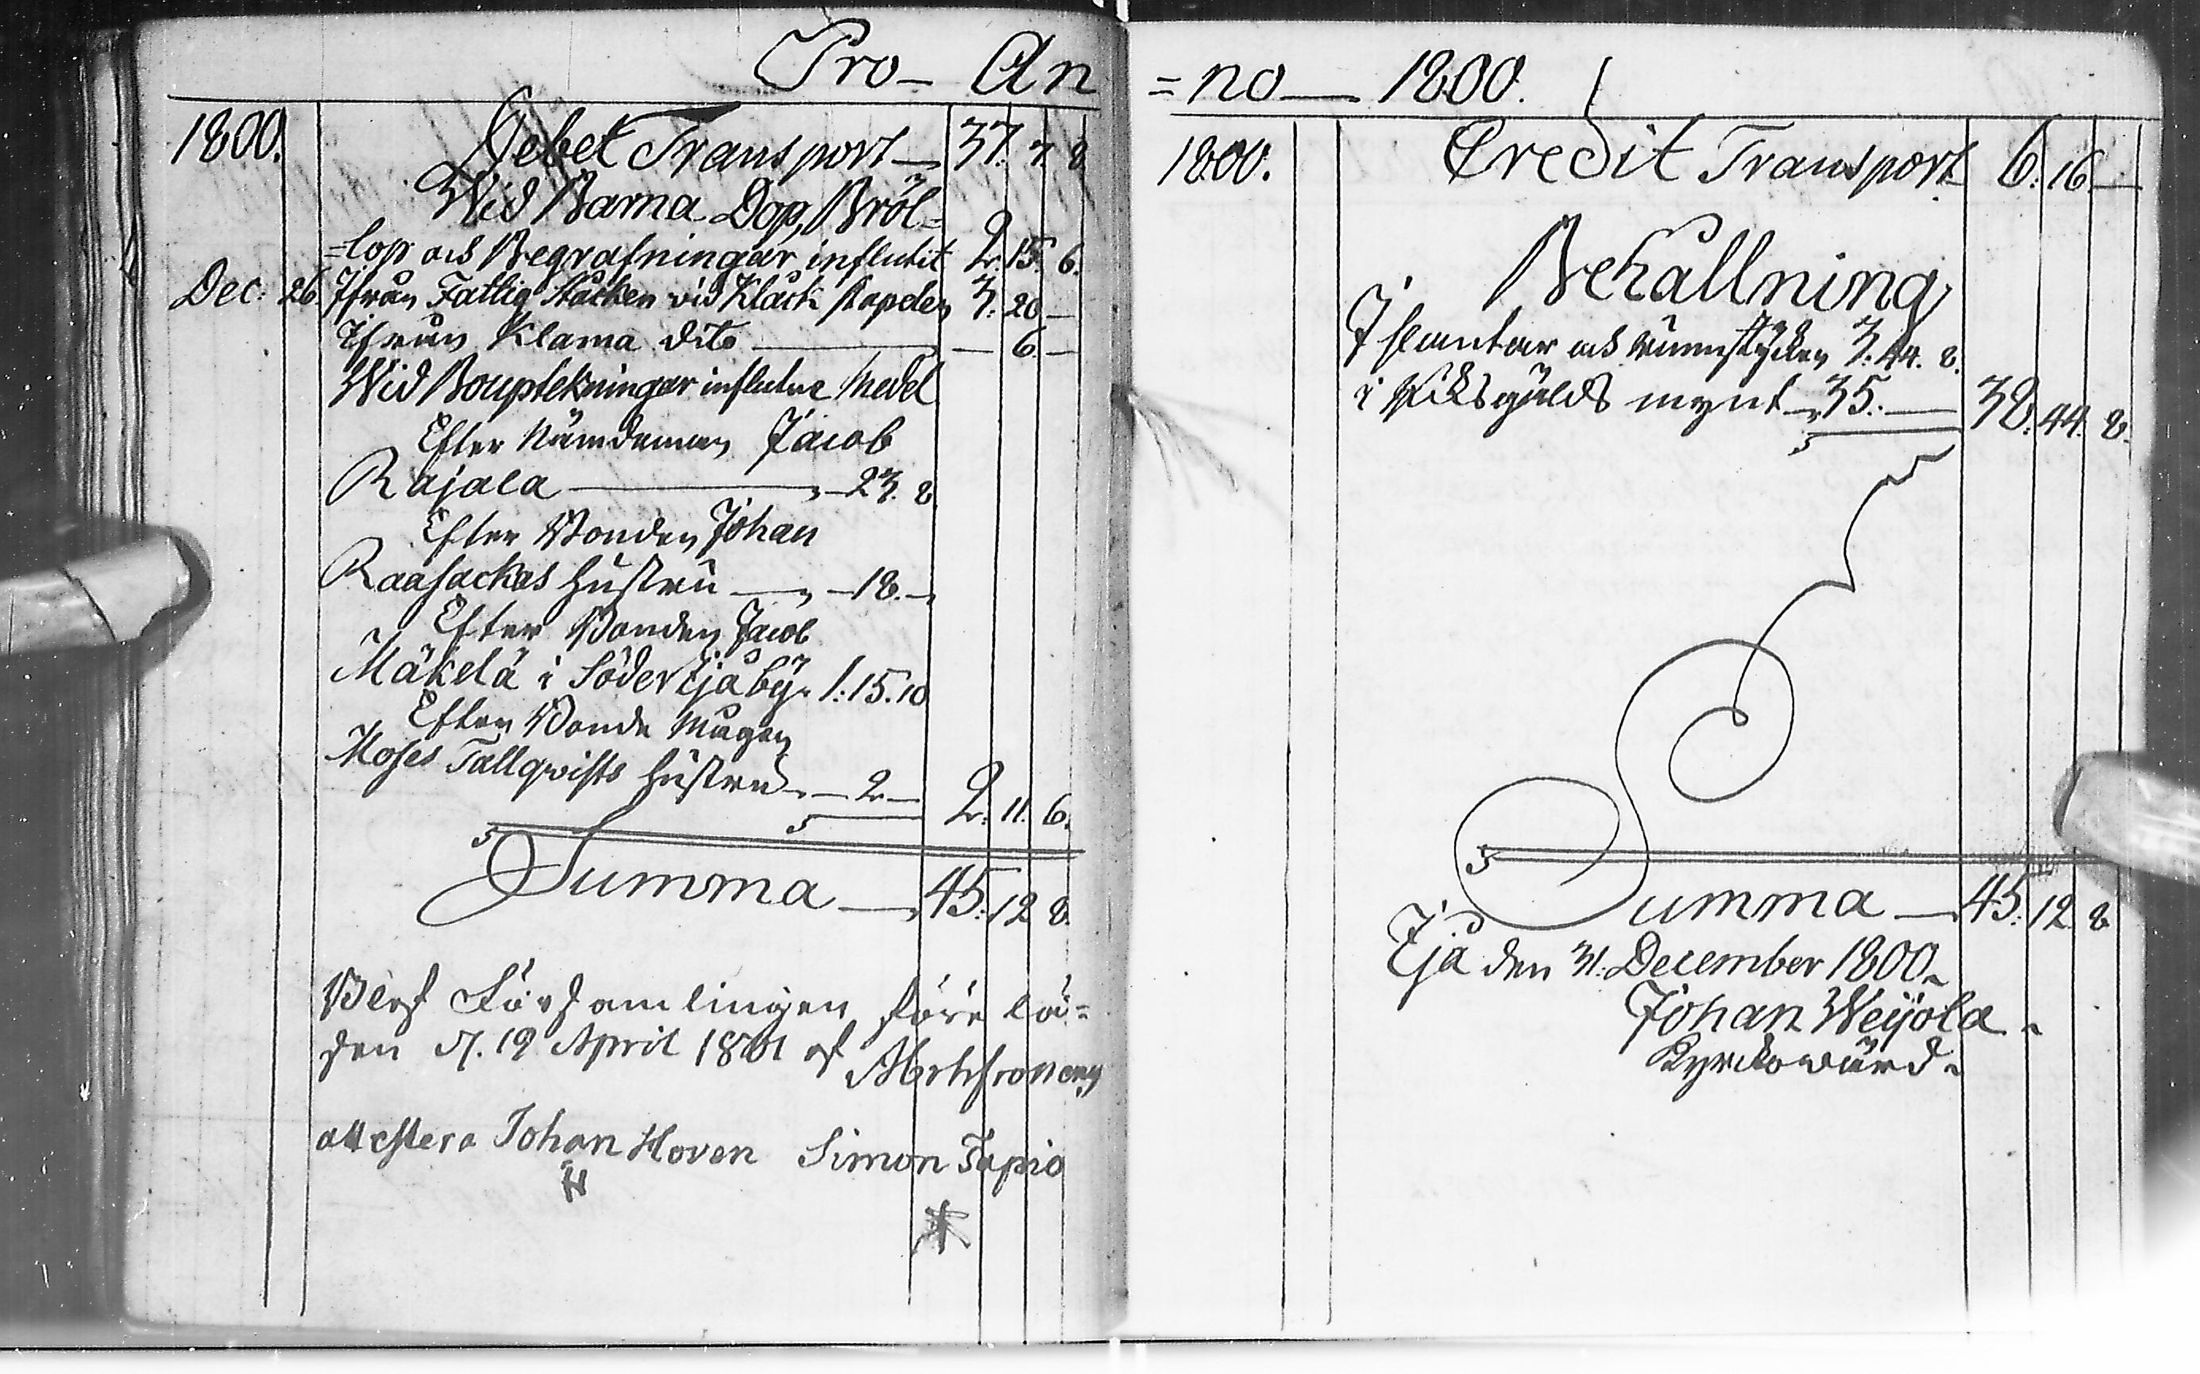 Pro — An
1800. Debet Transport — 37. 7. 8
Wid Barna Dop, Bröl=
=lop och Begrafningar influtit 2. 15. 6.
Dec: 26 Ifrån Fattig Stäcken vid Klåck Stapelen 3. 20 —
Ifrån Klama dito — — 6. —
Wid Bouptekningar influtne Medel
Efter Nämdeman Jacob
Rajala — 23. 8
Efter Bonden Johan
Raasackas hustru — 18. —
Efter Bonden Jacob
Mäkelä i Söder Ijå by. 1. 15. 10
Efter Bonde Mågen
Moses Tallqvists hustru — 2 — 2. 11. 6.
Summa — 45. 12 8.
Blef Församlingen före lä=
sen d. 19 April 1801 af
attestera Johan Hoven Simon Tapio
= no — 1800.
1800. Credit Transport 6. 16 —
Behållning
I slantar och runstÿcken 3. 44. 8.
i Riksgälds mynt — 35. — 38. 44. 8.
Summa — 45. 12 8
Ijå den 31. December 1800.
Johan Weijola.
Kyrkowärd.